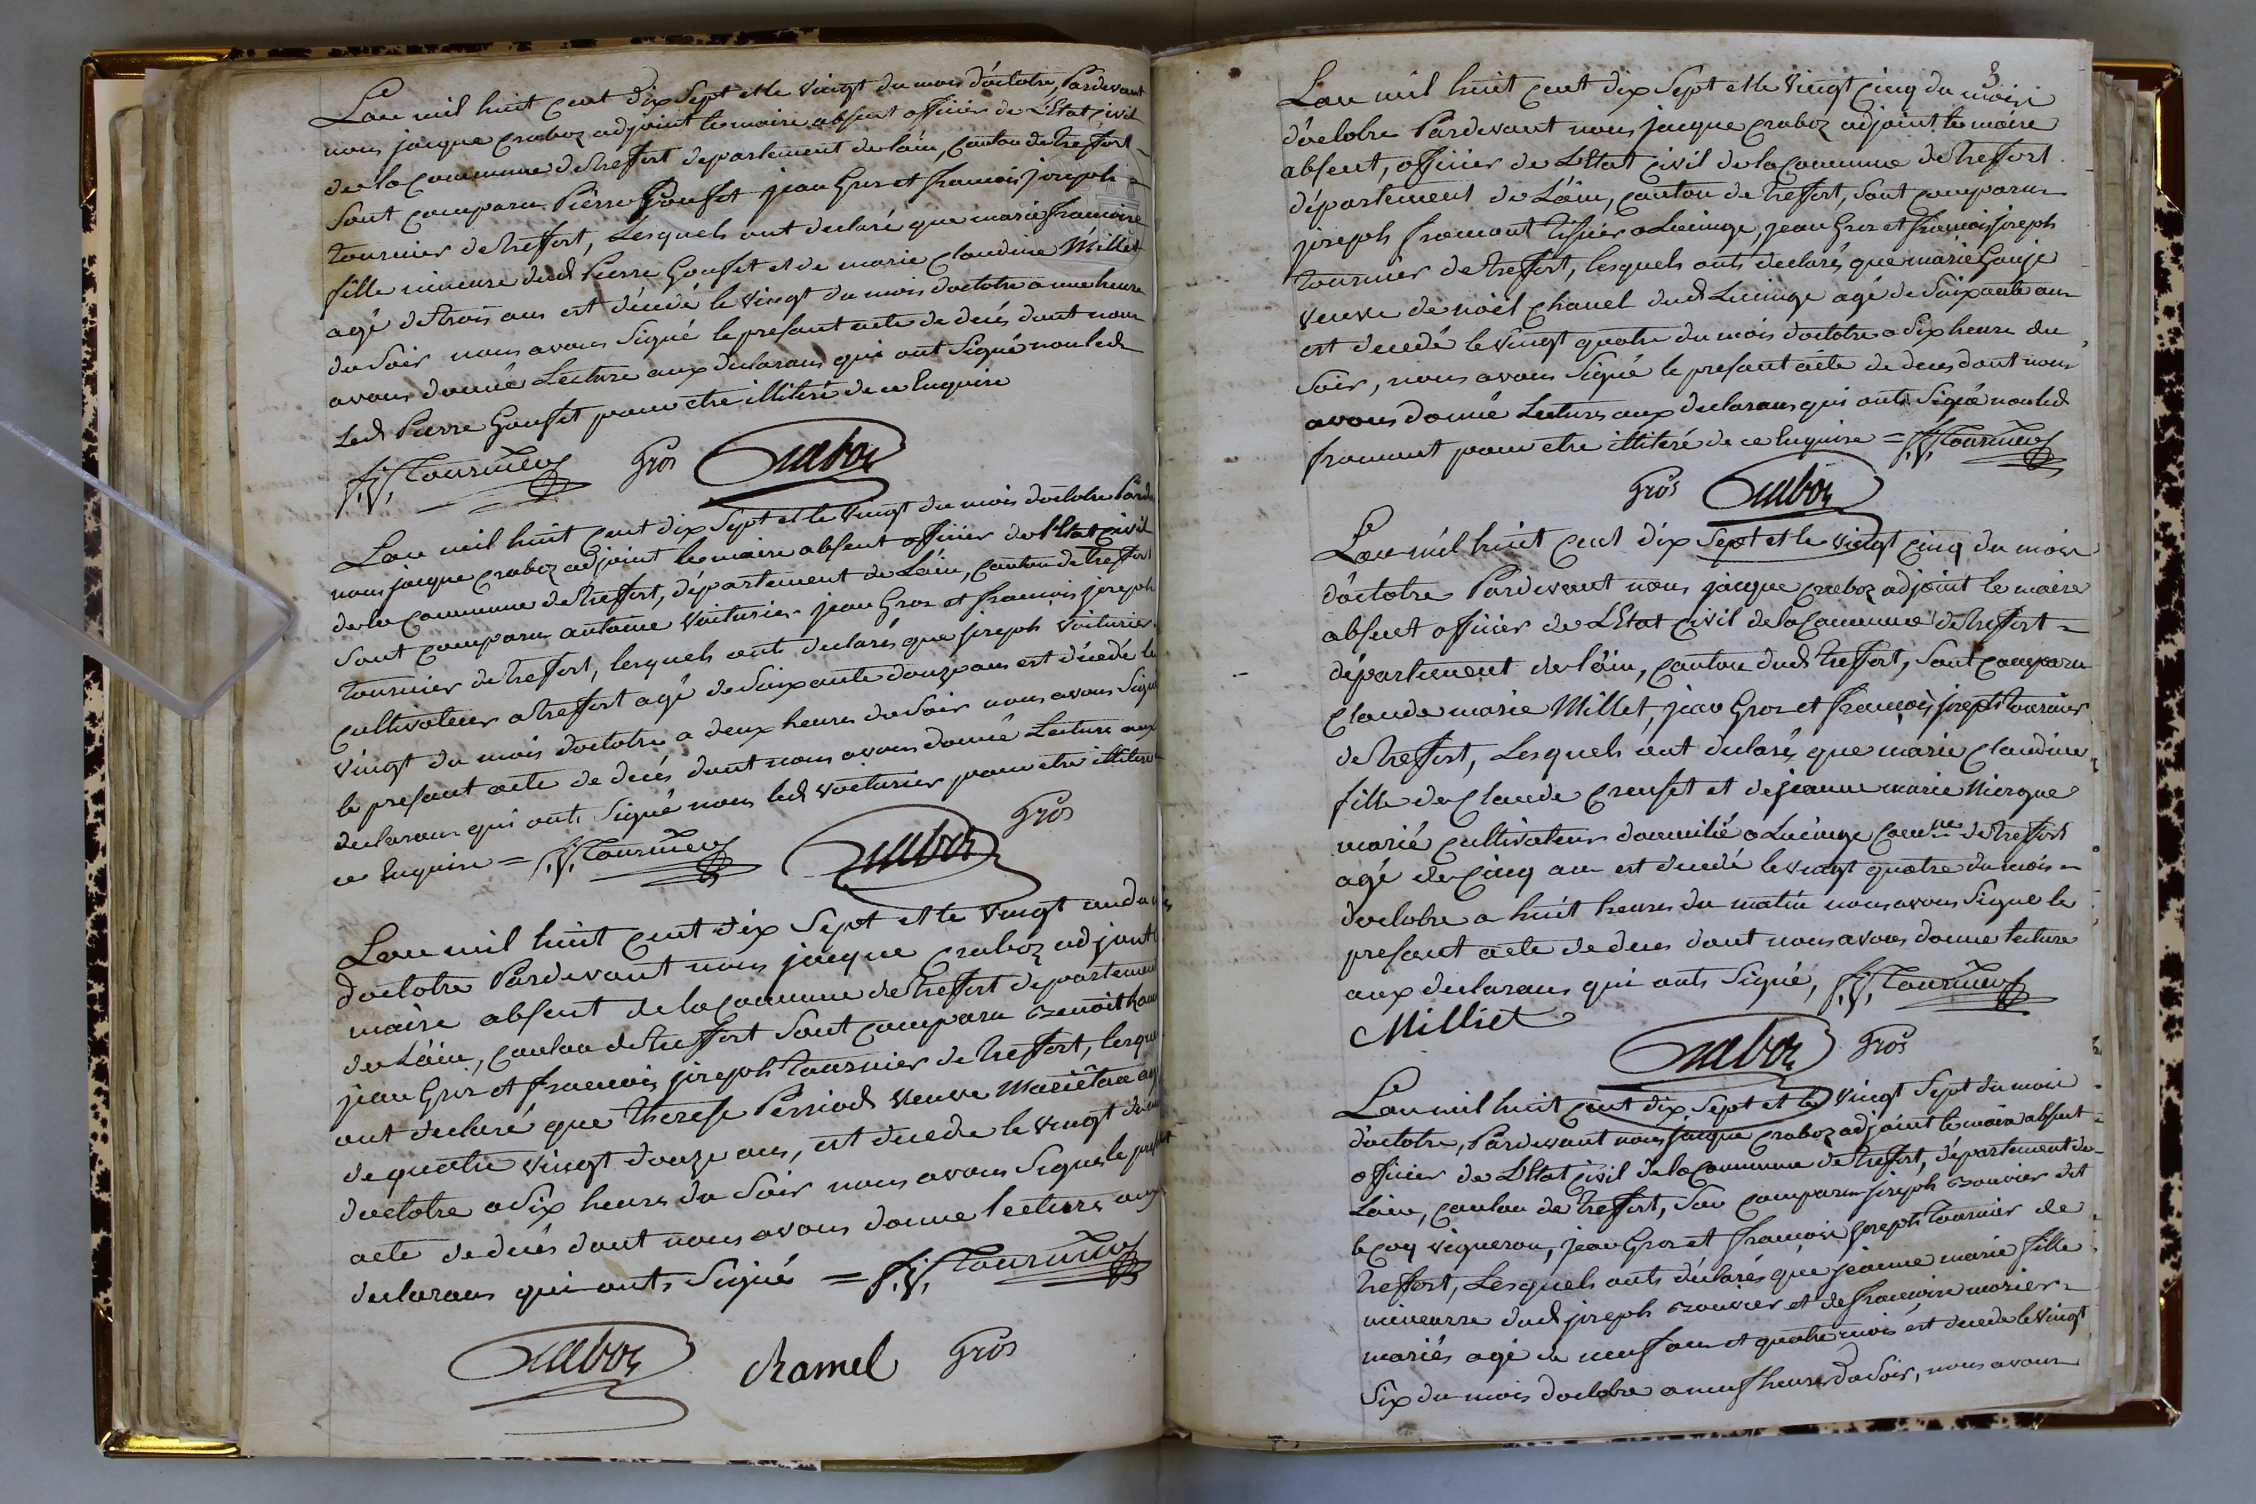 Lan mil huit cent dix Sept et le vingt du mois d'octobre, Pardevant
nous jacque craboz adjoint le maire absent officier de L'Etat civil
de la commune de treffort departement de lain, canton de treffort
Sont comparu Pierre Gouset jean Gros et francois joseph
tournier de treffort, Lesquels ont declaré que marie francoise
fille mineure dud Pierre Gouset et de marie claudine Millet
agé de trois ans est décedé le vingt du mois doctobre a une heure
du Soir nous avons Signé le presant acte de decés dont nous
avons donné Lecture aux declarans qui ont Signé non led
Led Pierre Gouset pour etre illiteré de ce Enquire
f. j. Tournier Gros Craboz
Lan mil huit cent dix Sept et le vingt du mois doctobre Parde
nous jacque craboz adjoint le maire absent officier de l'Etat civil
de la commune de treffort, département de Lain, canton de treffort
Sont comparu antoine Voiturier jean Gros et francois joseph
tournier de treffort, lesquels onts declarés que joseph Voiturier
cultivateur a treffort agé de Soixante douze ans est décedé le
vingt du mois doctobre a deux heures du Soir nous avons Signé
le presant acte de decés dont nous avons donné Lecture aux
declarans qui onts Signé nous led voiturier pour etre illiteré
ce Enquire = f. j. Tournier Craboz Gros
Lan mil huit cent dix Sept et le vingt un du
doctobre Pardevant nous jacque craboz adjoint
maire absent de la commune de treffort departement
de Lain, canton de treffort Sont comparu Benoit
jean Gros et francois joseph tournier de treffort, lesque
ont declaré que therese Perriod veuve
de quatre vingt douze ans, est decede le vingt du
doctobre a Six heures du Soir nous avons Signé le presant
acte de decés dont nous avons donne lecture aux
declarans qui onts Signé = f. j. Tournier
Craboz chamel Gros
3
Lan mil huit cent dix Sept et le vingt cinq du mois
d'octobre Pardevant nous jacque craboz adjoint le maire
absent, officier de L'Etat civil de la commune de treffort
département de Lain, canton de treffort, Sont comparu
joseph fromont a Lucinge, jean Gros et francois joseph
tournier de treffort, lesquels onts declarés que marie
veuve de noël chanel dud Lucinge agé de Soixante ans
est decedé le vingt quatre du mois doctobre a Six heure du
Soir, nous avons Signé le presant acte de deces dont nous
avons donné Lecture aux declarans qui onts Signé non led
fromont pour etre illiteré de ce Enquire = f. j. Tournier
Gros Craboz
Lan mil huit cent dix Sept et le vingt cinq du mois
d'octobre Pardevant nous jacque craboz adjoint le maire
absent officier de L'Etat civil de la commune de treffort
département de lain, canton dud treffort, Sont comparu
Claude marie Millet, jean Gros et francois joseph tournier
de treffort, Lesquels ont declaré, que marie claudine
fille de claude creuset et de jeanne marie
marié cultivateur domicilié a Lucinge comne de treffort
agé de cinq ans est decedé le vingt quatre du mois
doctobre a huit heures du matin nous avons Signé le
presant acte de deces dont nous avons donne lecture
aux declarans qui onts Signé, f. j. Tournier
Milliet Craboz Gros
Lan mil huit cent dix Sept et le vingt Sept du mois
d'octobre, Pardevant nous jacque craboz adjoint le maire absent
officier de L'Etat civil de la commune de treffort, département de
Lain, canton de treffort, Son comparu joseph Bouvier dit
le coq vigneron, jean Gros et francois joseph tournier de
treffort, Lesquels onts déclarés que jeanne marie fille
mineurre dud joseph Bouvier et de francoise morier
mariés agé de neuf ans et quatre mois est decede le vingt
Six du mois doctobre a neuf heures du Soir, nous avons